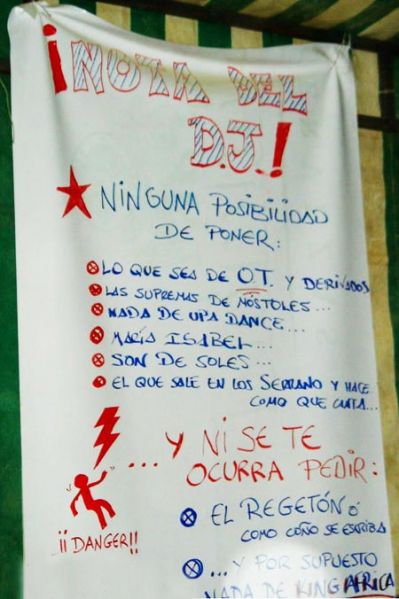 ¡NOTA DEL
D.J.!
NINGUNA POSIBILIDAD
DE PONER:
LO QUE SEA DE O.T. Y DERIVADOS
LAS SUPREMAS DE MÓSTOLES...
NADA DE UPA DANCE...
MARÍA ISABEL...
SON DE SOLES...
EL QUE SALE EN LOS SERRANO Y HACE
COMO QUE CANTA...
...Y NI SE TE
OCURRA PEDIR:
¡¡DANGER!!
EL REGETÓN Ó
COMO COÑO SE ESCRIBA
...Y POR SUPUESTO
NADA DE KING AFRICA